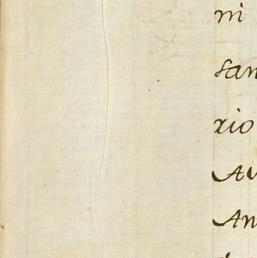 ni
san
rio
Au
An